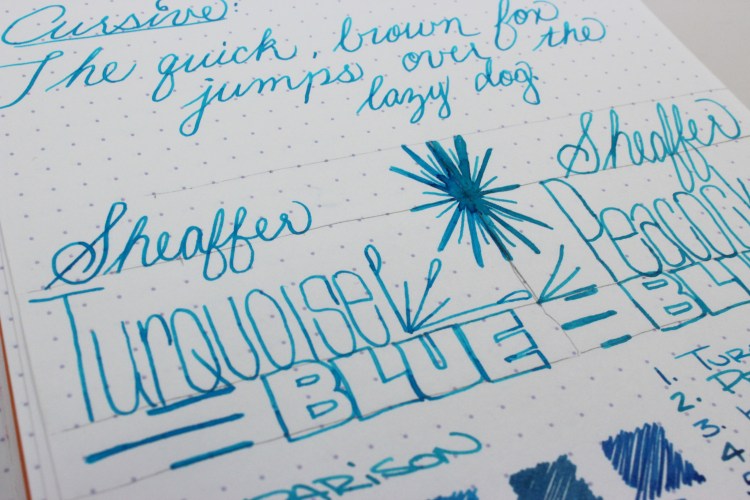 Cursive:
The quick, brown fox
jumps over the
lazy dog.
Sheaffer
Turquoise
BLUE
Sheaffer
Peacock
BLU
1.
2.
3.
4